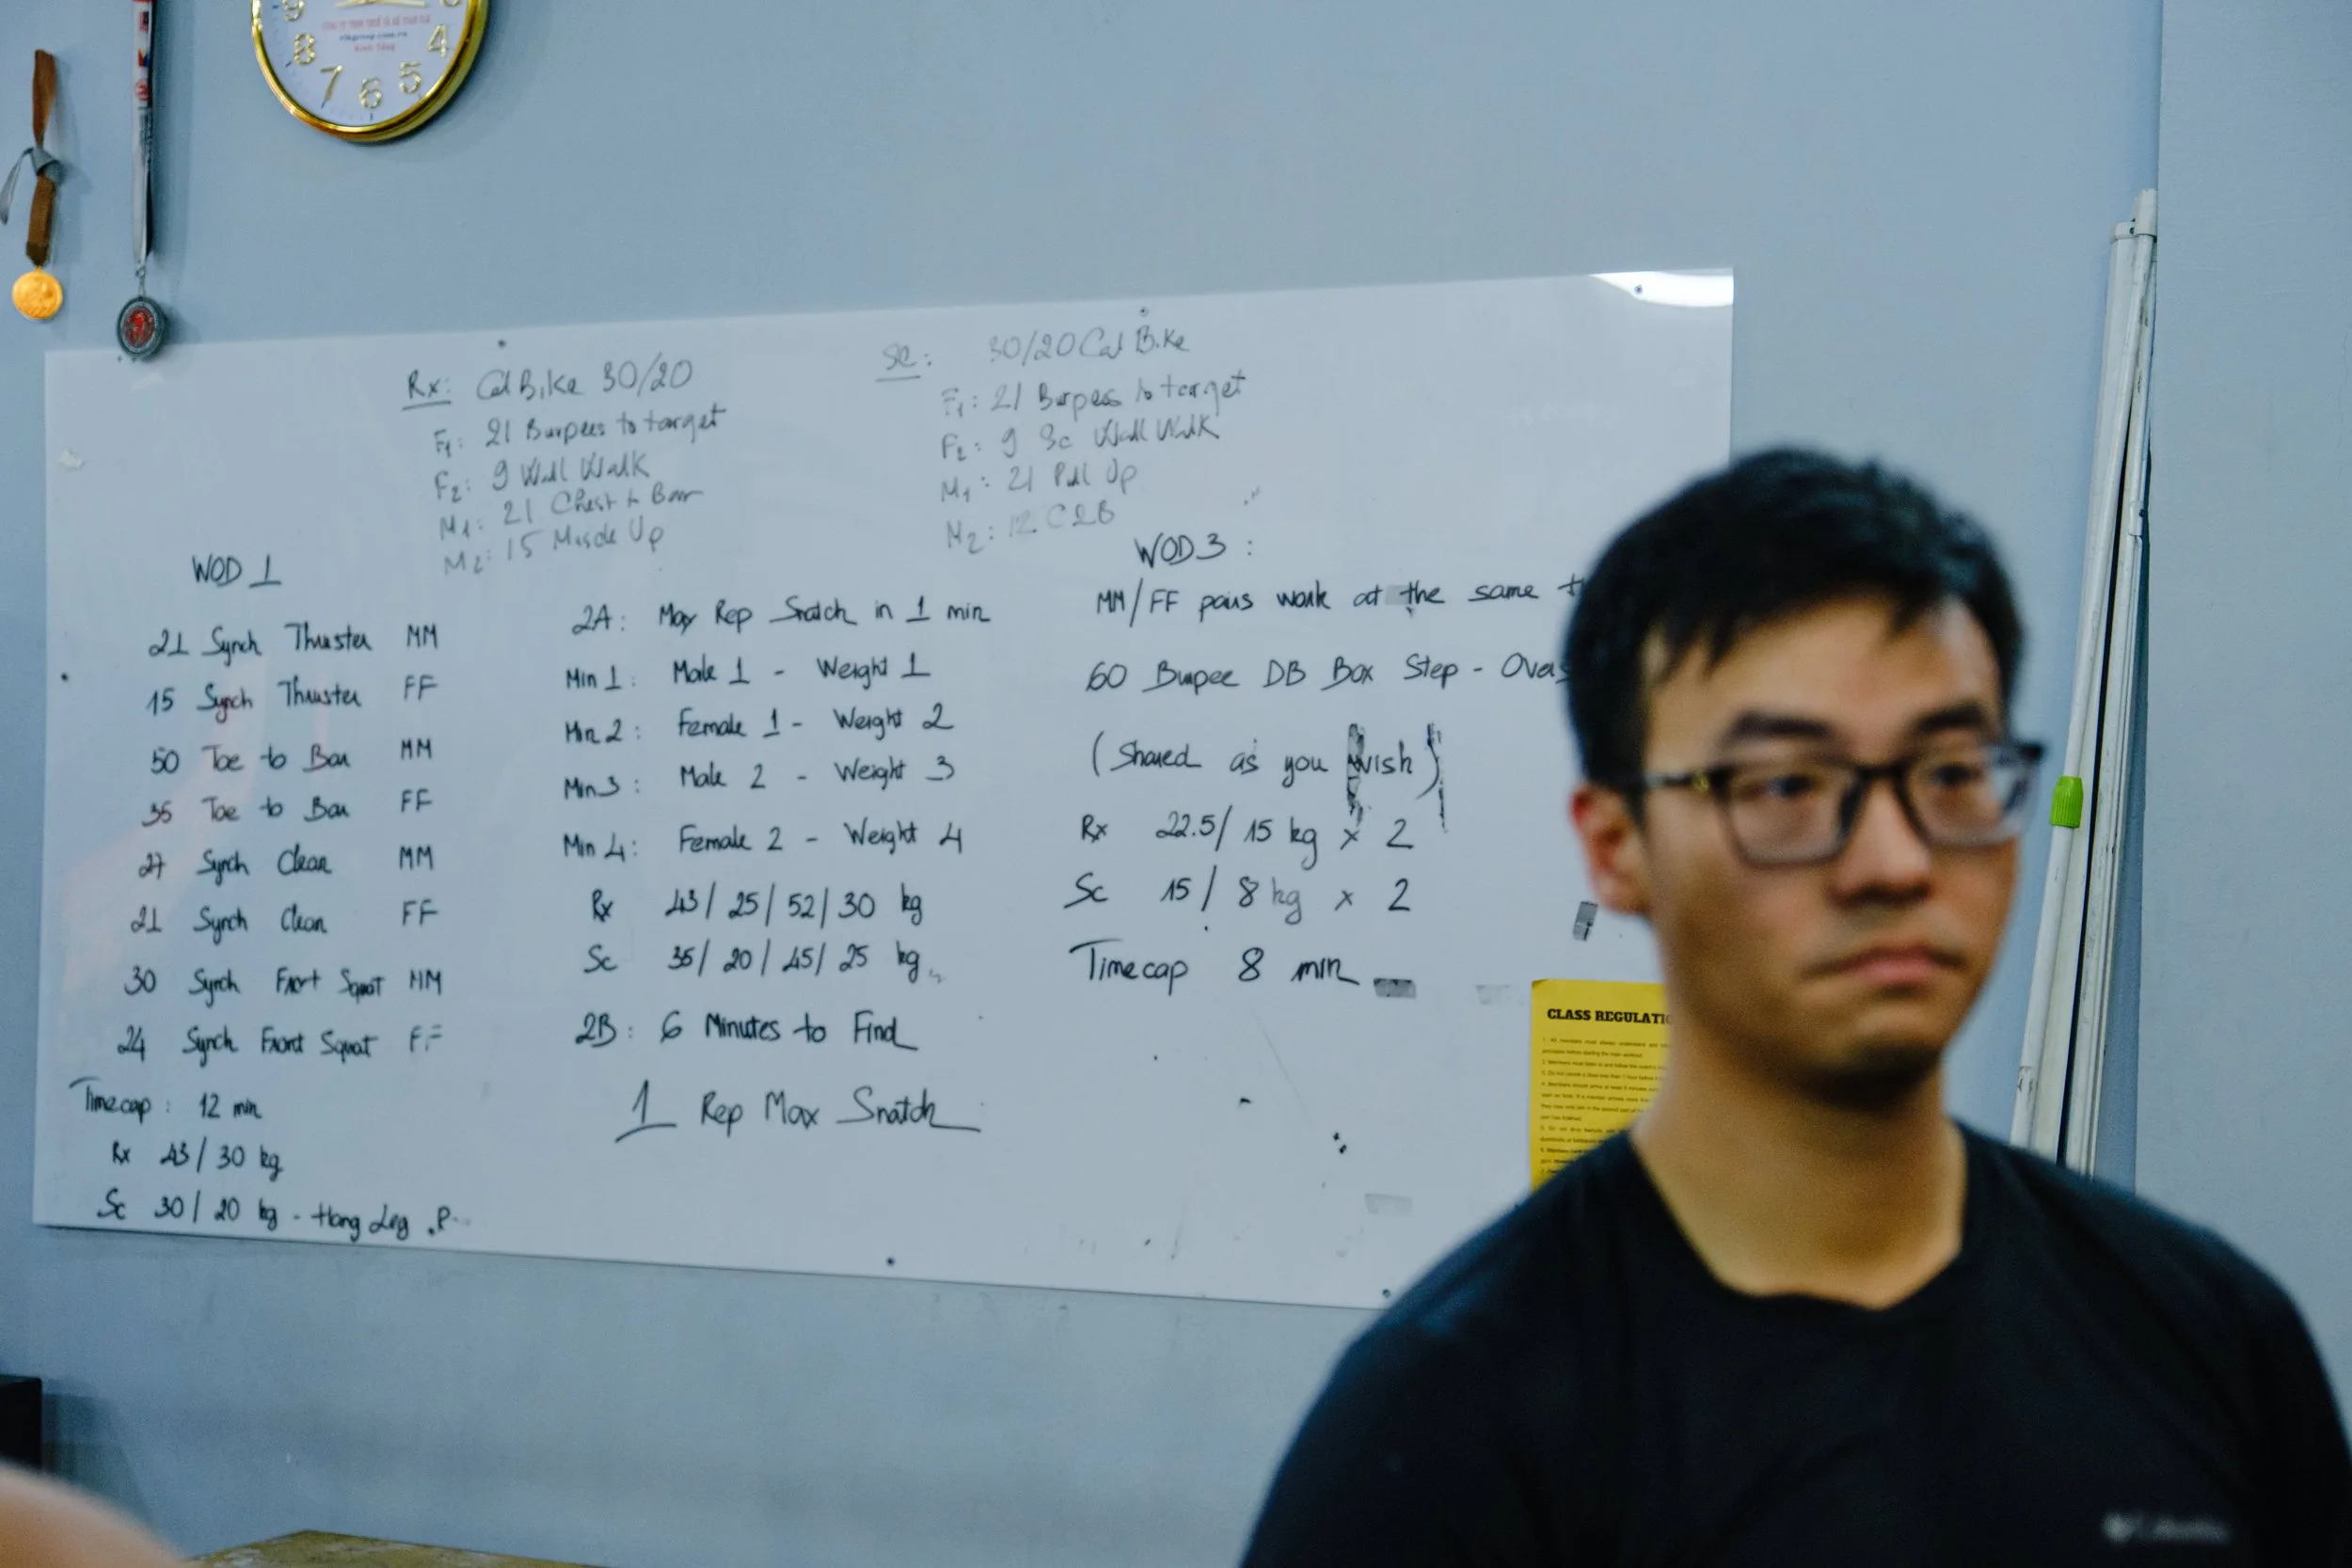 9
8
7
6
5
4
Rx: Cal Bike 30/20
F1: 21 Burpees to target
F2: 9 Wall Walk
M1: 21 Chest to Bar
M2: 15 Muscle Up
Sc: 30/20 Cal Bike
F1: 21 Burpees to target
F2: 9 Sc Wall Walk
M1: 21 Pull Up
M2: 12 C2B
WOD 1
21 Synch Thruster MM
15 Synch Thruster FF
50 Toe to Bar MM
35 Toe to Bar FF
27 Synch Clean MM
21 Synch Clean FF
30 Synch Front Squat MM
24 Synch Front Squat FF
Timecap: 12 min
Rx 43/30 kg
Sc 30/20 kg - Hang Leg
2A: Max Rep Snatch in 1 min
Min 1: Male 1 - Weight 1
Min 2: Female 1 - Weight 2
Min 3: Male 2 - Weight 3
Min 4: Female 2 - Weight 4
Rx 43/25/52/30 kg
Sc 35/20/45/25 kg
2B: 6 Minutes to Find
1 Rep Max Snatch
WOD 3:
MM/FF pairs work at the same
60 Burpee DB Box Step-Overs
(Shared as you wish)
Rx 22.5/15 kg x 2
Sc 15/8 kg x 2
Timecap 8 min
CLASS REGULATIO
Columbia